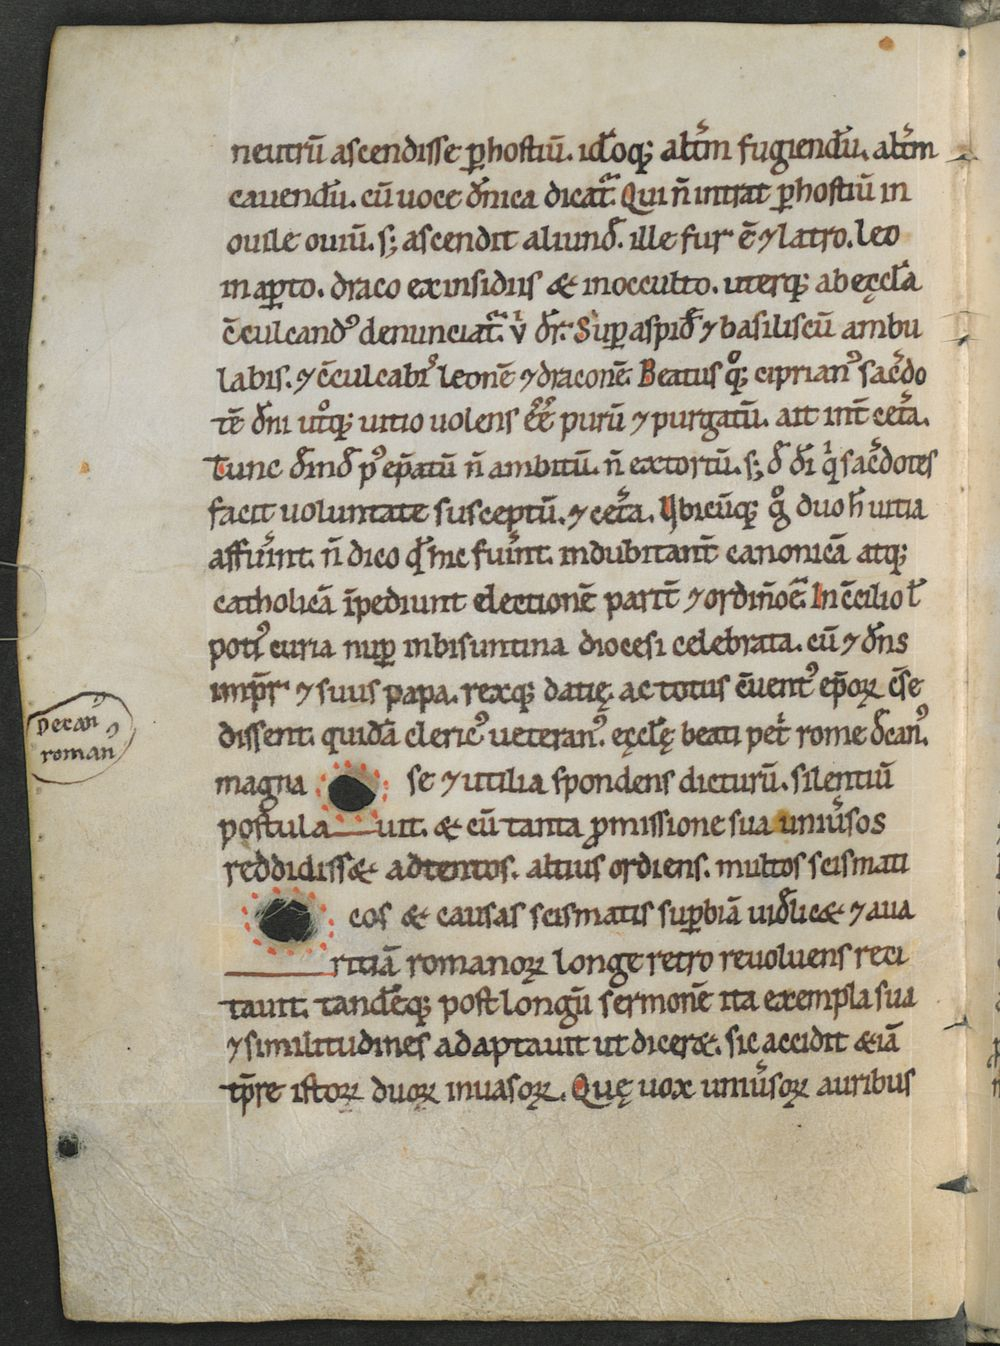 neutrū ascendisse ꝑ hostiū. idꝫoq; alt̄m fugiendū. alt̄m
cauendū. cū uoce dn̄ica dicat̄. Qui n̄ intrat ꝑ hostiū in
ouile ouiū. s; ascendit aliund̄. ille fur ē ⁊ latro. leo
in aꝑto. draco ex insidiis & in occulto. uterq; ab ęccl̄a
c̄culcand᾿ denunciat̄. v̇ dr̄. Suꝑ aspid̄ ⁊ basiliscū ambu
labis. ⁊ c̄culcabis leonē ⁊ draconē. Beatus q̊; ciprian᾿ sac̄do
tē dn̄i ut̊q; uitio uolens eē̄ purū ⁊ purgatū. ait int̄ cet̄a.
Tunc d̄ind̄ p᾿ ep̄atū n̄ ambitū. n̄ extortū. s; d̄ dī q̇ sac̄dotes
facit uoluntate susceptū. ⁊ cet̄a. Vbicūq; g̊ duo h̄ uitia
affuer̄int. n̄ dico qd̄ hic fuer̄int. indubitant̄ canonicā atq;
catholicā īpediunt electionē parit̄ ⁊ ordin̄oēm. In c̄cilio l̄
poti᾿ curia nuꝑ in bisuntina diocesi celebrata. cū ⁊ dn̄s
imp̄r ⁊ suus papa. rexq; datię. ac totus c̄uent᾿ ep̄oꝝ c̄se
dissent. quidā cleric᾿ ueteran᾿. ęcclę̄ beati pet̄ rome d̄can᾿.
Decan᾿
roman᾿
magna se ⁊ utilia spondens dicturū. silentiū
postula uit. & cū tanta ꝓmissione sua uniūsos
reddidiss& adtentos. altius ordiens. multos scismati
cos & causas scismatis suꝑbiā uidl̄ic& ⁊ aua
ritiā romanoꝝ longe retro reuoluens reci
tauit. tandēq; post longū sermonē ita exempla sua
⁊ similitudines adaptauit ut dicer&. sic accidit &iā
tp̄re istoꝝ duoꝝ inuasoꝝ. Quę uox uniūsoꝝ auribus